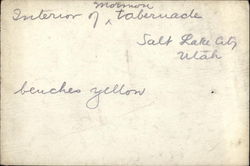 Interior of Mormon tabernacle
Salt Lake City
Utah
benches yellow